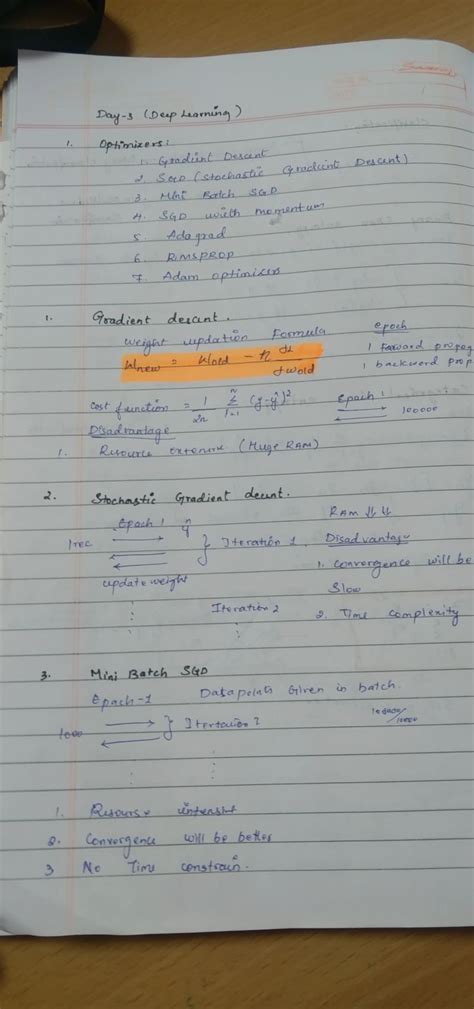 Day-3 (Deep Learning)
1. Optimizers:
1. Gradient Descent
2. SGD (Stochastic Gradient Descent)
3. Mini Batch SGD
4. SGD with momentum
5. Adagrad
6. RMSPROP
7. Adam optimizer
1. Gradient descent.
weight updation Formula epoch
Wnew = Wold - η dL/dwold 1 forward propag
1 backword prop
Cost function = 1/2n Σ i=1 n (y-ŷ)² Epoch 1 100000
Disadvantage
1. Resource extensive (Huge RAM)
2. Stochastic Gradient decent.
RAM ↓↓
Epoch 1 ŷ
1rec } Iteration 1 Disadvantage
1. Convergence will be
update weight Slow
Iteration 2 2. Time complexity
3. Mini Batch SGD
Epoch-1 Datapoints Given in batch.
1000 } Itertaion
1. Resourse intensit
2. Convergence will be better
3 No Time constrain.